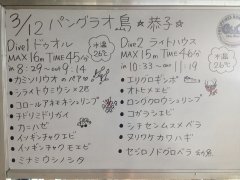 3/12 パングラオ島 ☆恭子☆
Dive1 ドゥオル
MAX 16m TIME 45分
in 8:29 〜 out 9:14
水温 26℃
カミソリウオのペア
シライトウミウシ×28
コロールアネモネシュリンプ
チドリミドリガイ
カミハゼ
イッキチャクエビ
イッキチャクモエビ
ミナミウシノシタ
Dive2 ライトハウス
MAX 15m TIME 46分
in 10:33 〜 out 11:19
水温 26℃
エリグロギンポ
オトヒメエビ
ロングクロウシュリンプ
コガラシエビ
シチセンムスメベラ
ヌリワケカワハギ
セジロノドグロベラ